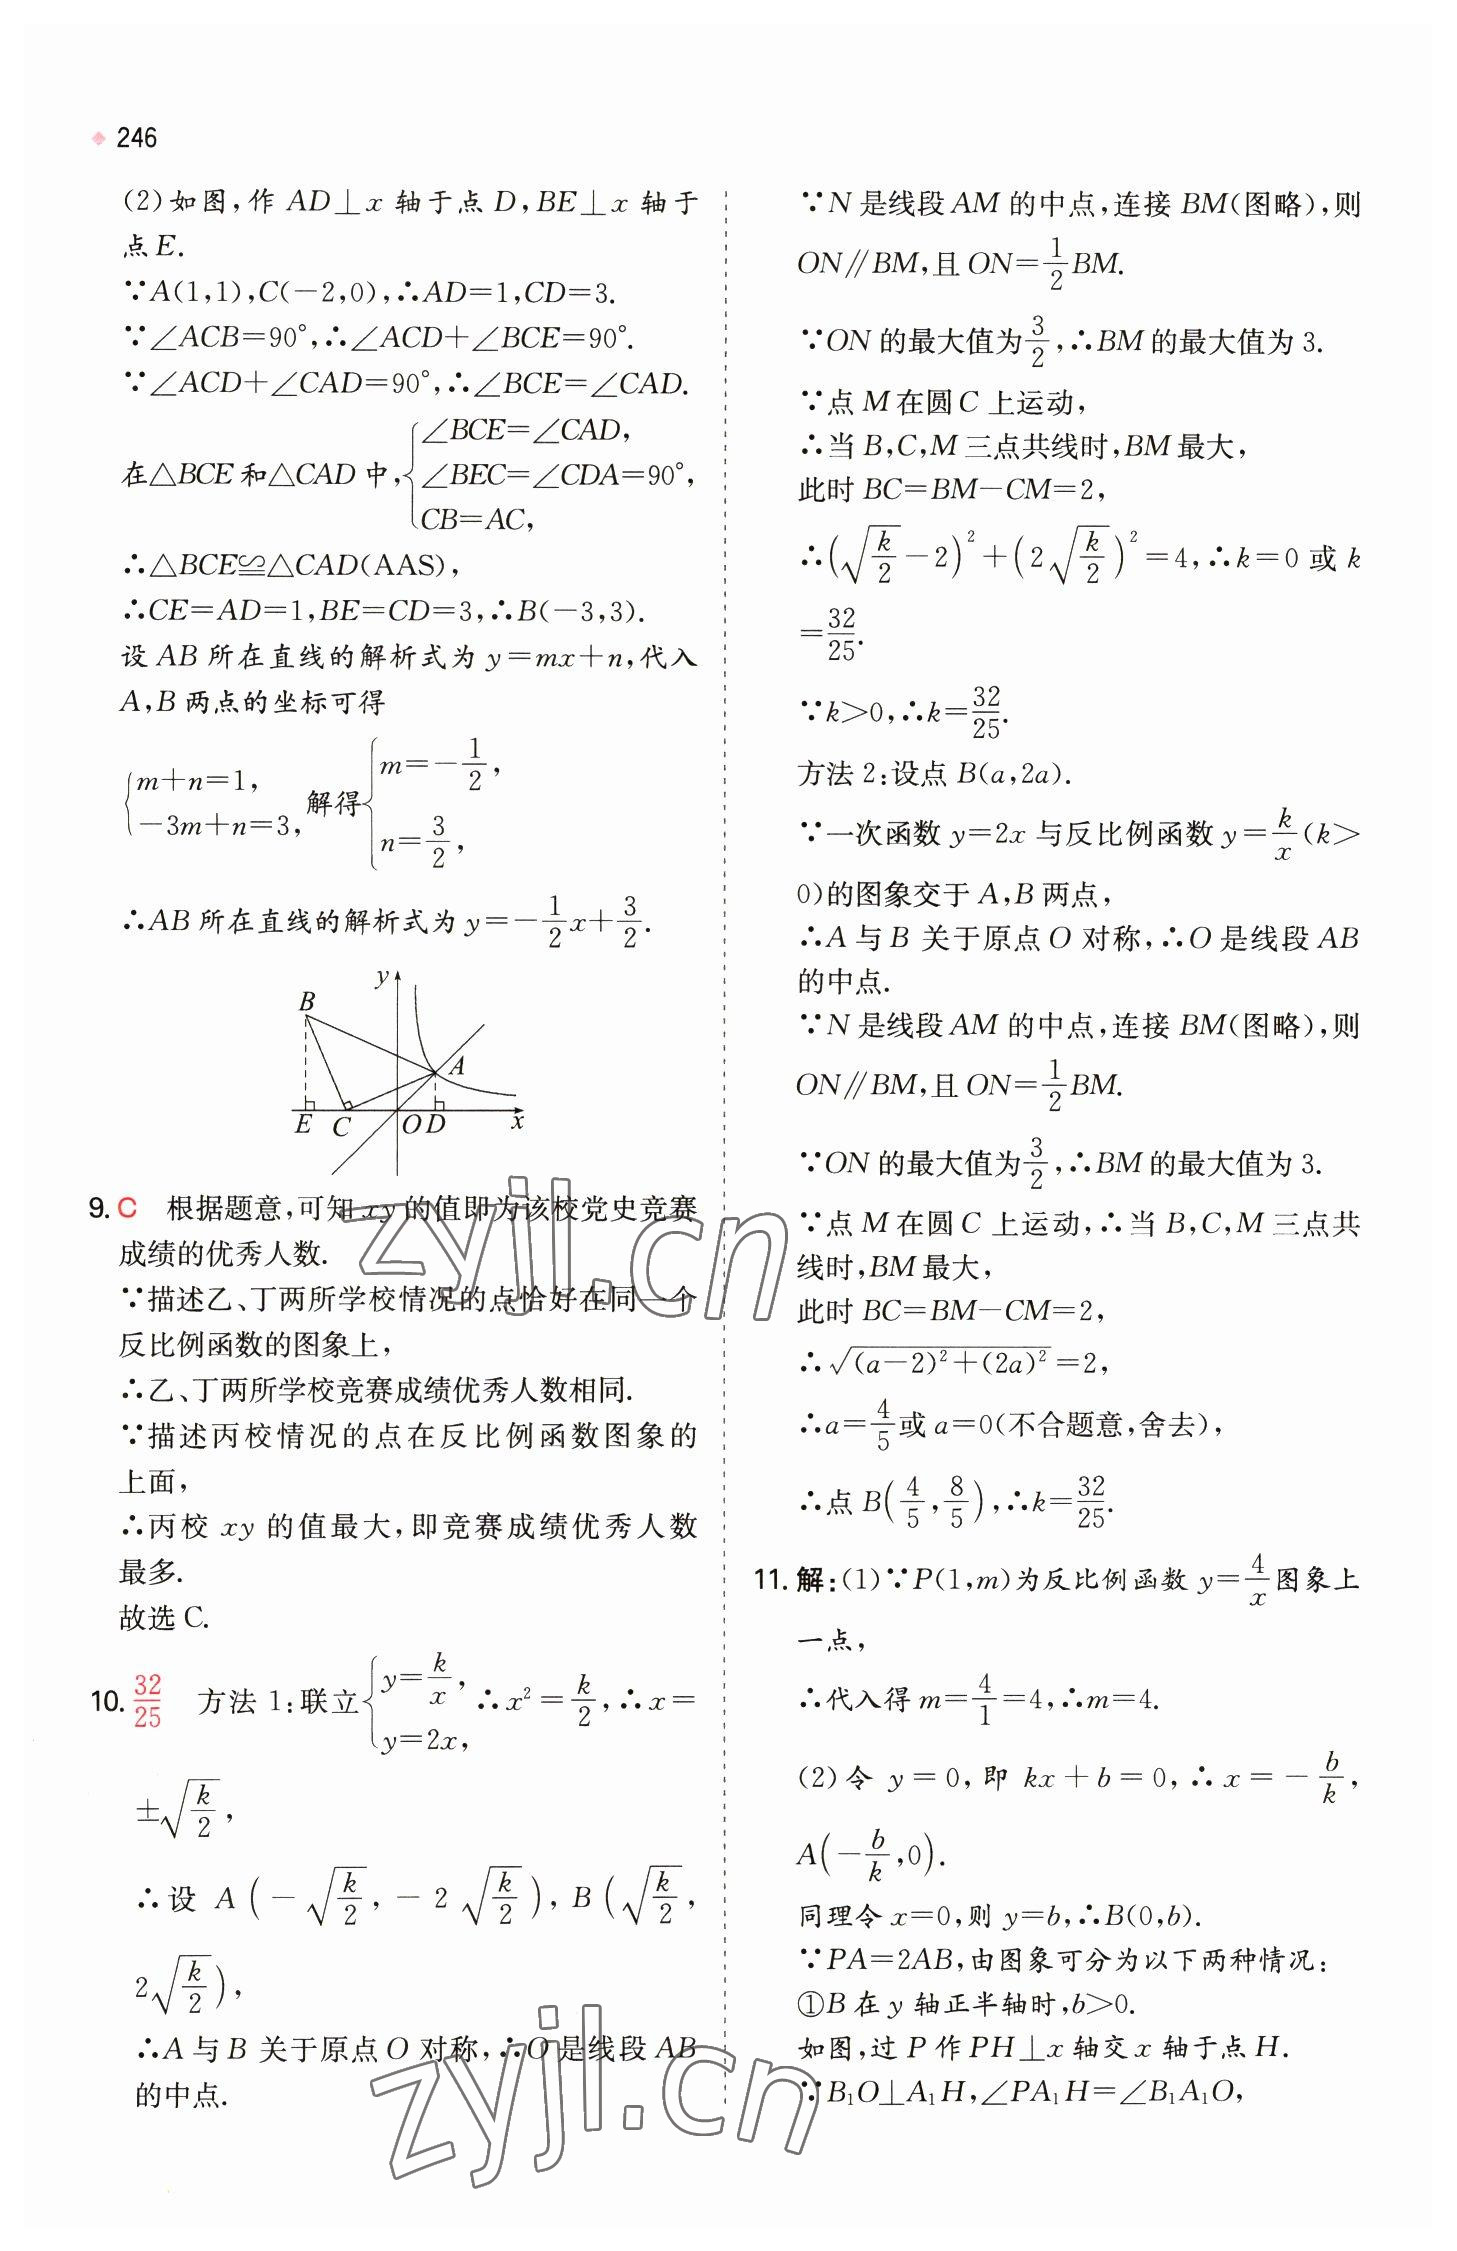 246
(2)如图,作 AD⊥x 轴于点 D,BE⊥x 轴于
点E.
∵A(1,1),C(-2,0),∴AD=1,CD=3.
∵∠ACB=90°,∴∠ACD+∠BCE=90°.
∵∠ACD+∠CAD=90°,∴∠BCE=∠CAD.
在△BCE和△CAD中,{∠BCE=∠CAD, ∠BEC=∠CDA=90°, CB=AC,
∴△BCE≌△CAD(AAS),
∴CE=AD=1,BE=CD=3,∴B(-3,3).
设AB所在直线的解析式为y=mx+n,代入
A,B两点的坐标可得
{m+n=1, -3m+n=3, 解得{m=-1/2, n=3/2,
∴AB所在直线的解析式为y=-1/2x+3/2.
y
B
A
E C O D x
9. C 根据题意,可知xy的值即为该校党史竞赛
成绩的优秀人数.
∵描述乙、丁两所学校情况的点恰好在同一个
反比例函数的图象上,
∴乙、丁两所学校竞赛成绩优秀人数相同.
∵描述丙校情况的点在反比例函数图象的
上面,
∴丙校 xy 的值最大,即竞赛成绩优秀人数
最多.
故选C.
10. 32/25 方法1:联立{y=k/x, y=2x, ∴x²=k/2,∴x=
±√(k/2),
∴设 A(-√(k/2),-2√(k/2)),B(√(k/2),
2√(k/2)),
∴A与B关于原点O对称,∴O是线段AB
的中点.
∵N是线段AM的中点,连接BM(图略),则
ON∥BM,且ON=1/2BM.
∵ON的最大值为3/2,∴BM的最大值为3.
∵点M在圆C上运动,
∴当B,C,M三点共线时,BM最大,
此时BC=BM-CM=2,
∴(√(k/2)-2)²+(2√(k/2))²=4,∴k=0或k
=32/25.
∵k>0,∴k=32/25.
方法2:设点B(a,2a).
∵一次函数y=2x与反比例函数y=k/x(k>
0)的图象交于A,B两点,
∴A与B关于原点O对称,∴O是线段AB
的中点.
∵N是线段AM的中点,连接BM(图略),则
ON∥BM,且ON=1/2BM.
∵ON的最大值为3/2,∴BM的最大值为3.
∵点M在圆C上运动,∴当B,C,M三点共
线时,BM最大,
此时BC=BM-CM=2,
∴√((a-2)²+(2a)²)=2,
∴a=4/5或a=0(不合题意,舍去),
∴点B(4/5,8/5),∴k=32/25.
11. 解:(1)∵P(1,m)为反比例函数y=4/x图象上
一点,
∴代入得m=4/1=4,∴m=4.
(2)令 y=0,即 kx+b=0,∴x=-b/k,
A(-b/k,0).
同理令x=0,则y=b,∴B(0,b).
∵PA=2AB,由图象可分为以下两种情况:
①B在y轴正半轴时,b>0.
如图,过P作PH⊥x轴交x轴于点H.
∵B₁O⊥A₁H,∠PA₁H=∠B₁A₁O,
zyjl.cn
zyjl.cn